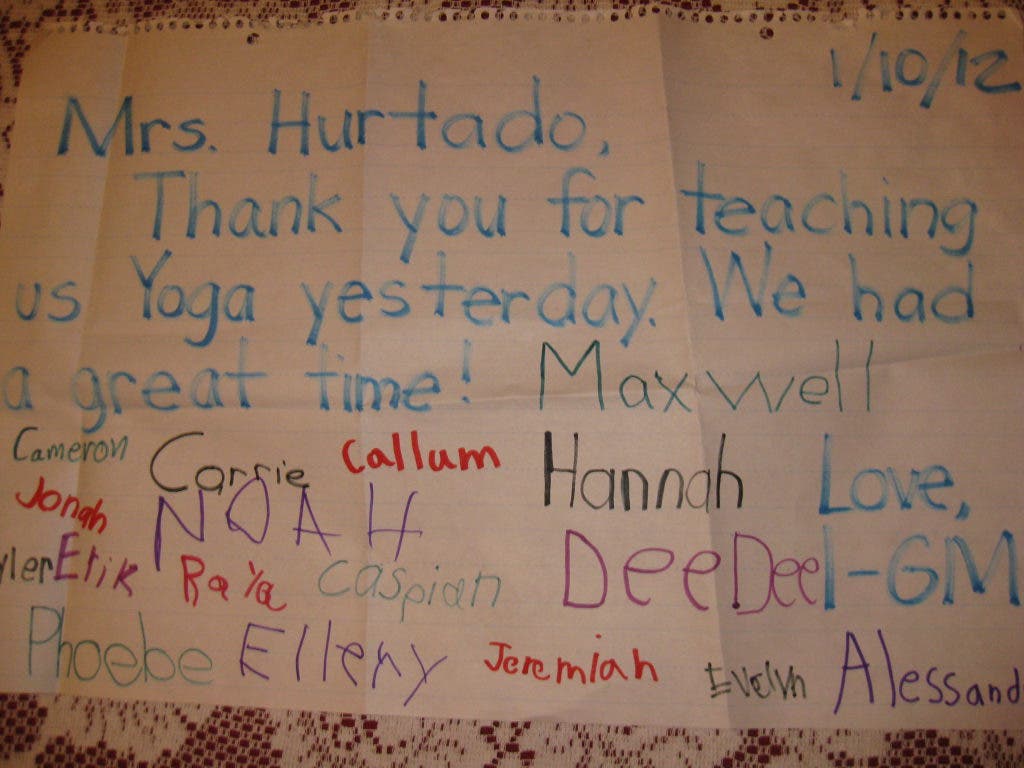 1/10/12
Mrs. Hurtado,
Thank you for teaching
us Yoga yesterday. We had
a great time! Maxwell
Cameron Carrie Callum Hannah Love,
Jonah NOAH
yler Erik RaYa Caspian DeeDee 1-GM
Phoebe Elleny Jeremiah Evelyn Alessand